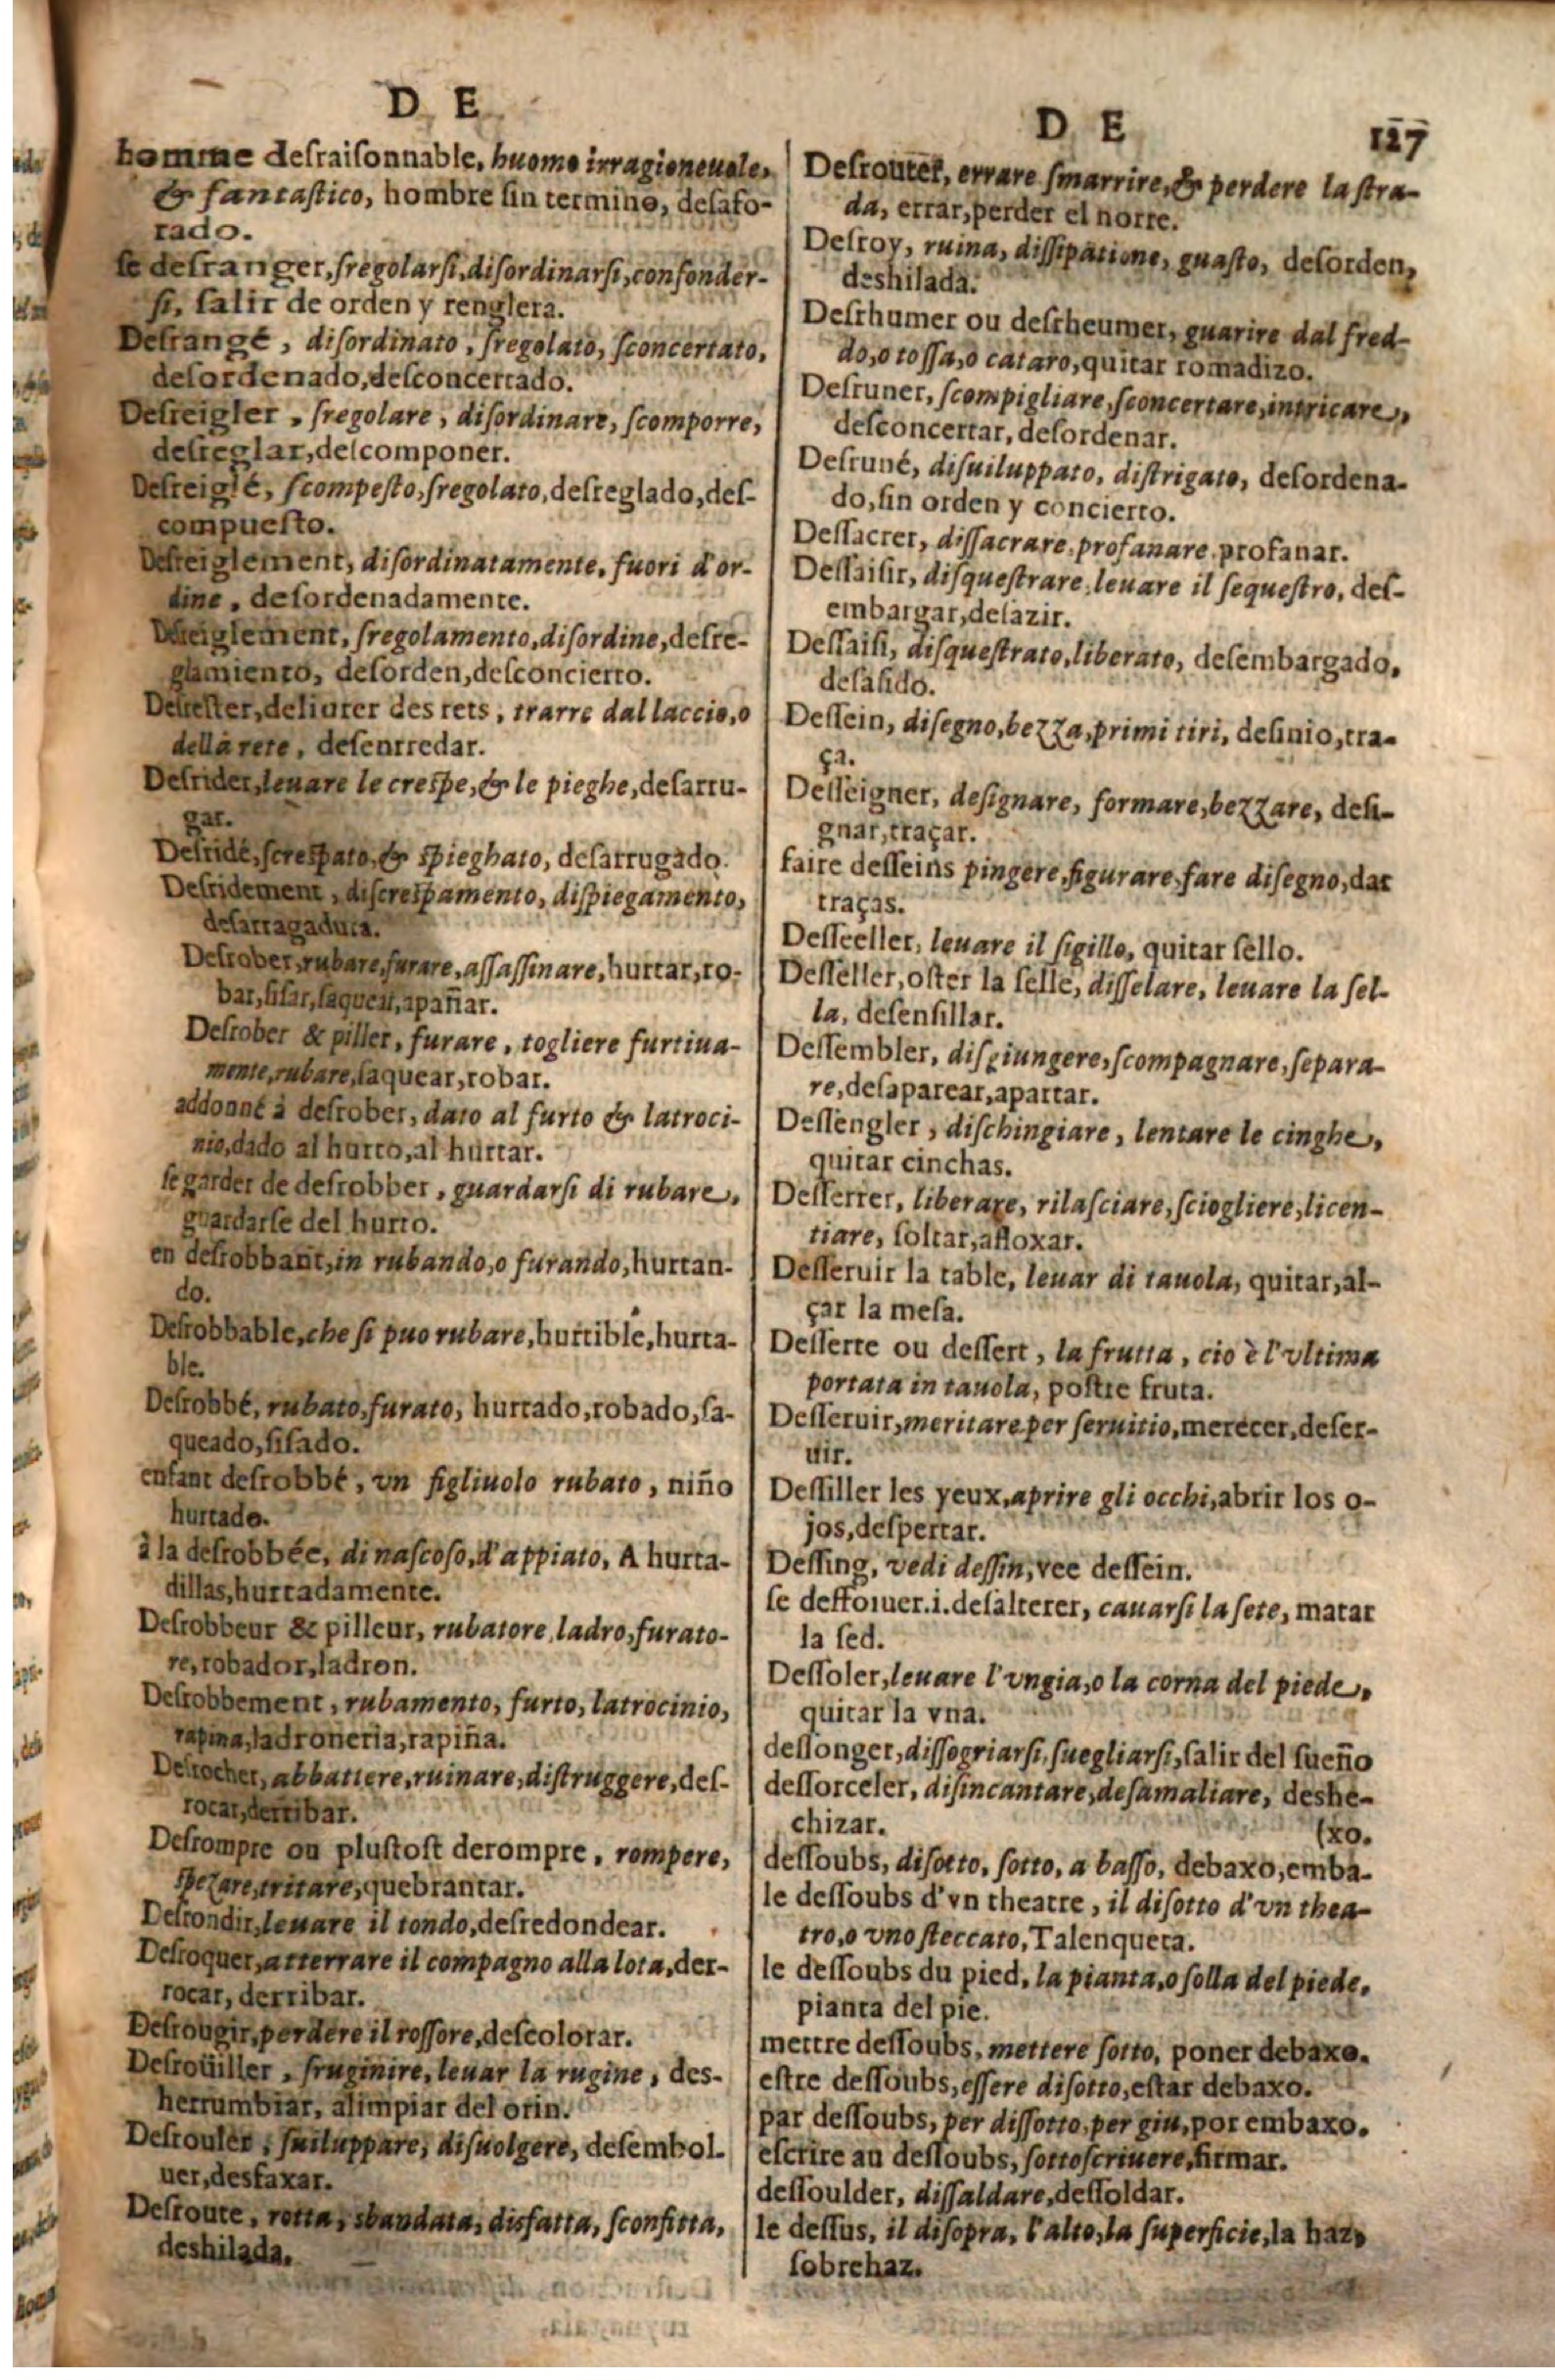 D E
homme desraiſonnable, huomo irragioneuole,
& fantaſtico, hombre ſin termino, deſafo-
rado.
ſe deſranger, ſregolarſi, diſordinarſi, confonder-
ſi, ſalir de orden y renglera.
Deſrangé, diſordinato, ſregolato, ſconcertato,
deſordenado, deſconcertado.
Deſreigler, ſregolare, diſordinare, ſcomporre,
deſreglar, deſcomponer.
Deſreiglé, ſcompoſto, ſregolato, deſreglado, deſ-
compueſto.
Deſreiglement, diſordinatamente, fuori d'or-
dine, deſordenadamente.
Deſreiglement, ſregolamento, diſordine, deſre-
glamiento, deſorden, deſconcierto.
Deſreſter, deliurer des rets, trarre dal laccio, o
della rete, deſenrredar.
Deſrider, leuare le creſpe, & le pieghe, deſarru-
gar.
Deſridé, ſcreſpato, & ſpieghato, deſarrugado.
Deſridement, diſcreſpamento, diſpiegamento,
deſarragadura.
Deſrober, rubare, furare, aſſaſſinare, hurtar, ro-
bar, ſiſar, ſaquear, apañar.
Deſrober & piller, furare, togliere furtiua-
mente, rubare, ſaquear, robar.
addonné à deſrober, dato al furto & latroci-
nio, dado al hurto, al hurtar.
ſe garder de deſrobber, guardarſi di rubare,
guardarſe del hurto.
en deſrobbant, in rubando, o furando, hurtan-
do.
Deſrobbable, che ſi puo rubare, hurtible, hurta-
ble.
Deſrobbé, rubato, furato, hurtado, robado, ſa-
queado, ſiſado.
enfant deſrobbé, vn figliuolo rubato, niño
hurtado.
à la deſrobbée, di naſcoſo, d'appiato, A hurta-
dillas, hurtadamente.
Deſrobbeur & pilleur, rubatore, ladro, furato-
re, robador, ladron.
Deſrobbement, rubamento, furto, latrocinio,
rapina, ladroneria, rapiña.
Deſrocher, abbattere, ruinare, diſtruggere, deſ-
rocar, derribar.
Deſrompre ou pluſtoſt derompre, rompere,
ſpezare, tritare, quebrantar.
Deſrondir, leuare il tondo, deſredondear.
Deſroquer, atterrare il compagno alla lota, der-
rocar, derribar.
Deſrougir, perdere il roſſore, deſcolorar.
Deſroüiller, ſruginire, leuar la rugine, des-
herrumbiar, alimpiar del orin.
Deſrouler, ſuiluppare, diſuolgere, deſembol-
uer, desfaxar.
Deſroute, rotta, sbandata, disfatta, ſconfitta,
deshilada.
D E 127
Deſrouter, errare ſmarrire, & perdere la ſtra-
da, errar, perder el norte.
Deſroy, ruina, diſſipatione, guaſto, deſorden,
deshilada.
Deſrhumer ou deſrheumer, guarire dal fred-
do, o toſſa, o cataro, quitar romadizo.
Deſruner, ſcompigliare, ſconcertare, intricare,
deſconcertar, deſordenar.
Deſruné, diſuiluppato, diſtrigato, deſordena-
do, ſin orden y concierto.
Deſſacrer, diſſacrare, profanare, profanar.
Deſſaiſir, diſqueſtrare, leuare il ſequeſtro, deſ-
embargar, deſazir.
Deſſaiſi, diſqueſtrato, liberato, deſembargado,
deſaſido.
Deſſein, diſegno, bezza, primi tiri, deſinio, tra-
ça.
Deſſeigner, deſignare, formare, bezzare, deſi-
gnar, traçar.
faire deſſeins pingere, figurare, fare diſegno, dar
traças.
Deſſeeller, leuare il ſigillo, quitar ſello.
Deſſeller, oſter la ſelle, diſſelare, leuare la ſel-
la, deſenſillar.
Deſſembler, diſgiungere, ſcompagnare, ſepara-
re, deſaparear, apartar.
Deſſengler, diſchingiare, lentare le cinghe,
quitar cinchas.
Deſſerrer, liberare, rilaſciare, ſciogliere, licen-
tiare, ſoltar, afloxar.
Deſſeruir la table, leuar di tauola, quitar, al-
çar la meſa.
Deſſerte ou deſſert, la frutta, cio è l'vltima
portata in tauola, poſtre fruta.
Deſſeruir, meritare per ſeruitio, merecer, deſer-
uir.
Deſſiller les yeux, aprire gli occhi, abrir los o-
jos, deſpertar.
Deſſing, vedi deſſin, vee deſſein.
ſe deſſoiuer.i.deſalterer, cauarſi la ſete, matar
la ſed.
Deſſoler, leuare l'vngia, o la corna del piede,
quitar la vna.
deſſonger, diſſogriarſi, ſuegliarſi, ſalir del ſueño
deſſorceler, diſincantare, deſamaliare, deshe-
chizar. (xo.
deſſoubs, diſotto, ſotto, a baſſo, debaxo, emba-
le deſſoubs d'vn theatre, il diſotto d'vn thea-
tro, o vno ſteccato, Talenquera.
le deſſoubs du pied, la pianta, o ſolla del piede,
pianta del pie.
mettre deſſoubs, mettere ſotto, poner debaxo.
eſtre deſſoubs, eſſere diſotto, eſtar debaxo.
par deſſoubs, per diſſotto, per giu, por embaxo.
eſcrire au deſſoubs, ſottoſcriuere, firmar.
deſſoulder, diſſaldare, deſſoldar.
le deſſus, il diſopra, l'alto, la ſuperficie, la haz,
ſobrehaz.